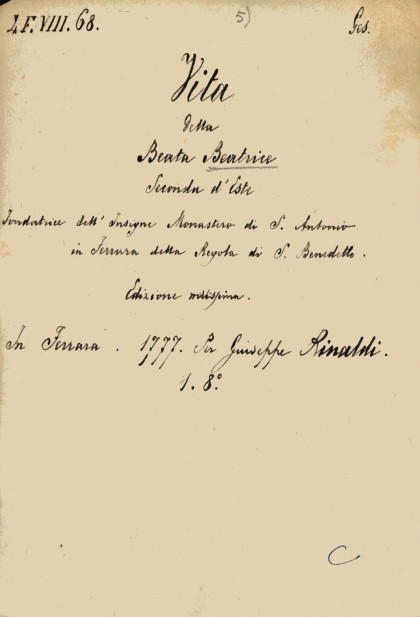 4 F. VIII. 68.
5)
Ges.
Vita
della
Beata Beatrice
Seconda d'Este
Fondatrice dell' Insigne Monastero di S. Antonio
in Ferrara della Regola di S. Benedetto.
Edizione
In Ferrara. 1777. Per Giuseppe Rinaldi.
1. 8.°
C